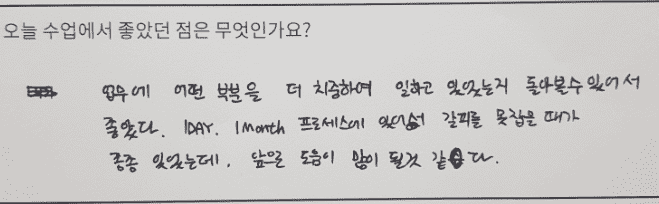 오늘 수업에서 좋았던 점은 무엇인가요?
업무에 어떤 부분을 더 치중하여 일하고 있었는지 돌아볼수 있어서
좋았다. 1DAY. 1Month 프로세스에 있어서 갈피를 못잡을 때가
종종 있었는데, 앞으로 도움이 많이 될것 같다.